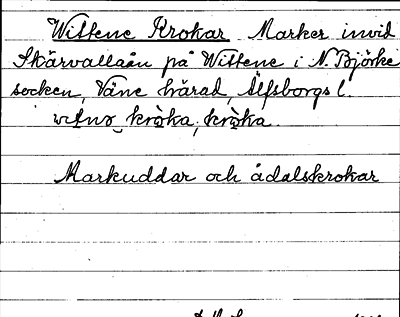 Wittene Krokar Marker invid
Skärvallaån på Wittene i N. Björke
socken, Väne härad, Älfsborgs l.
krōka, krōka.
Markuddar och ådalskrokar